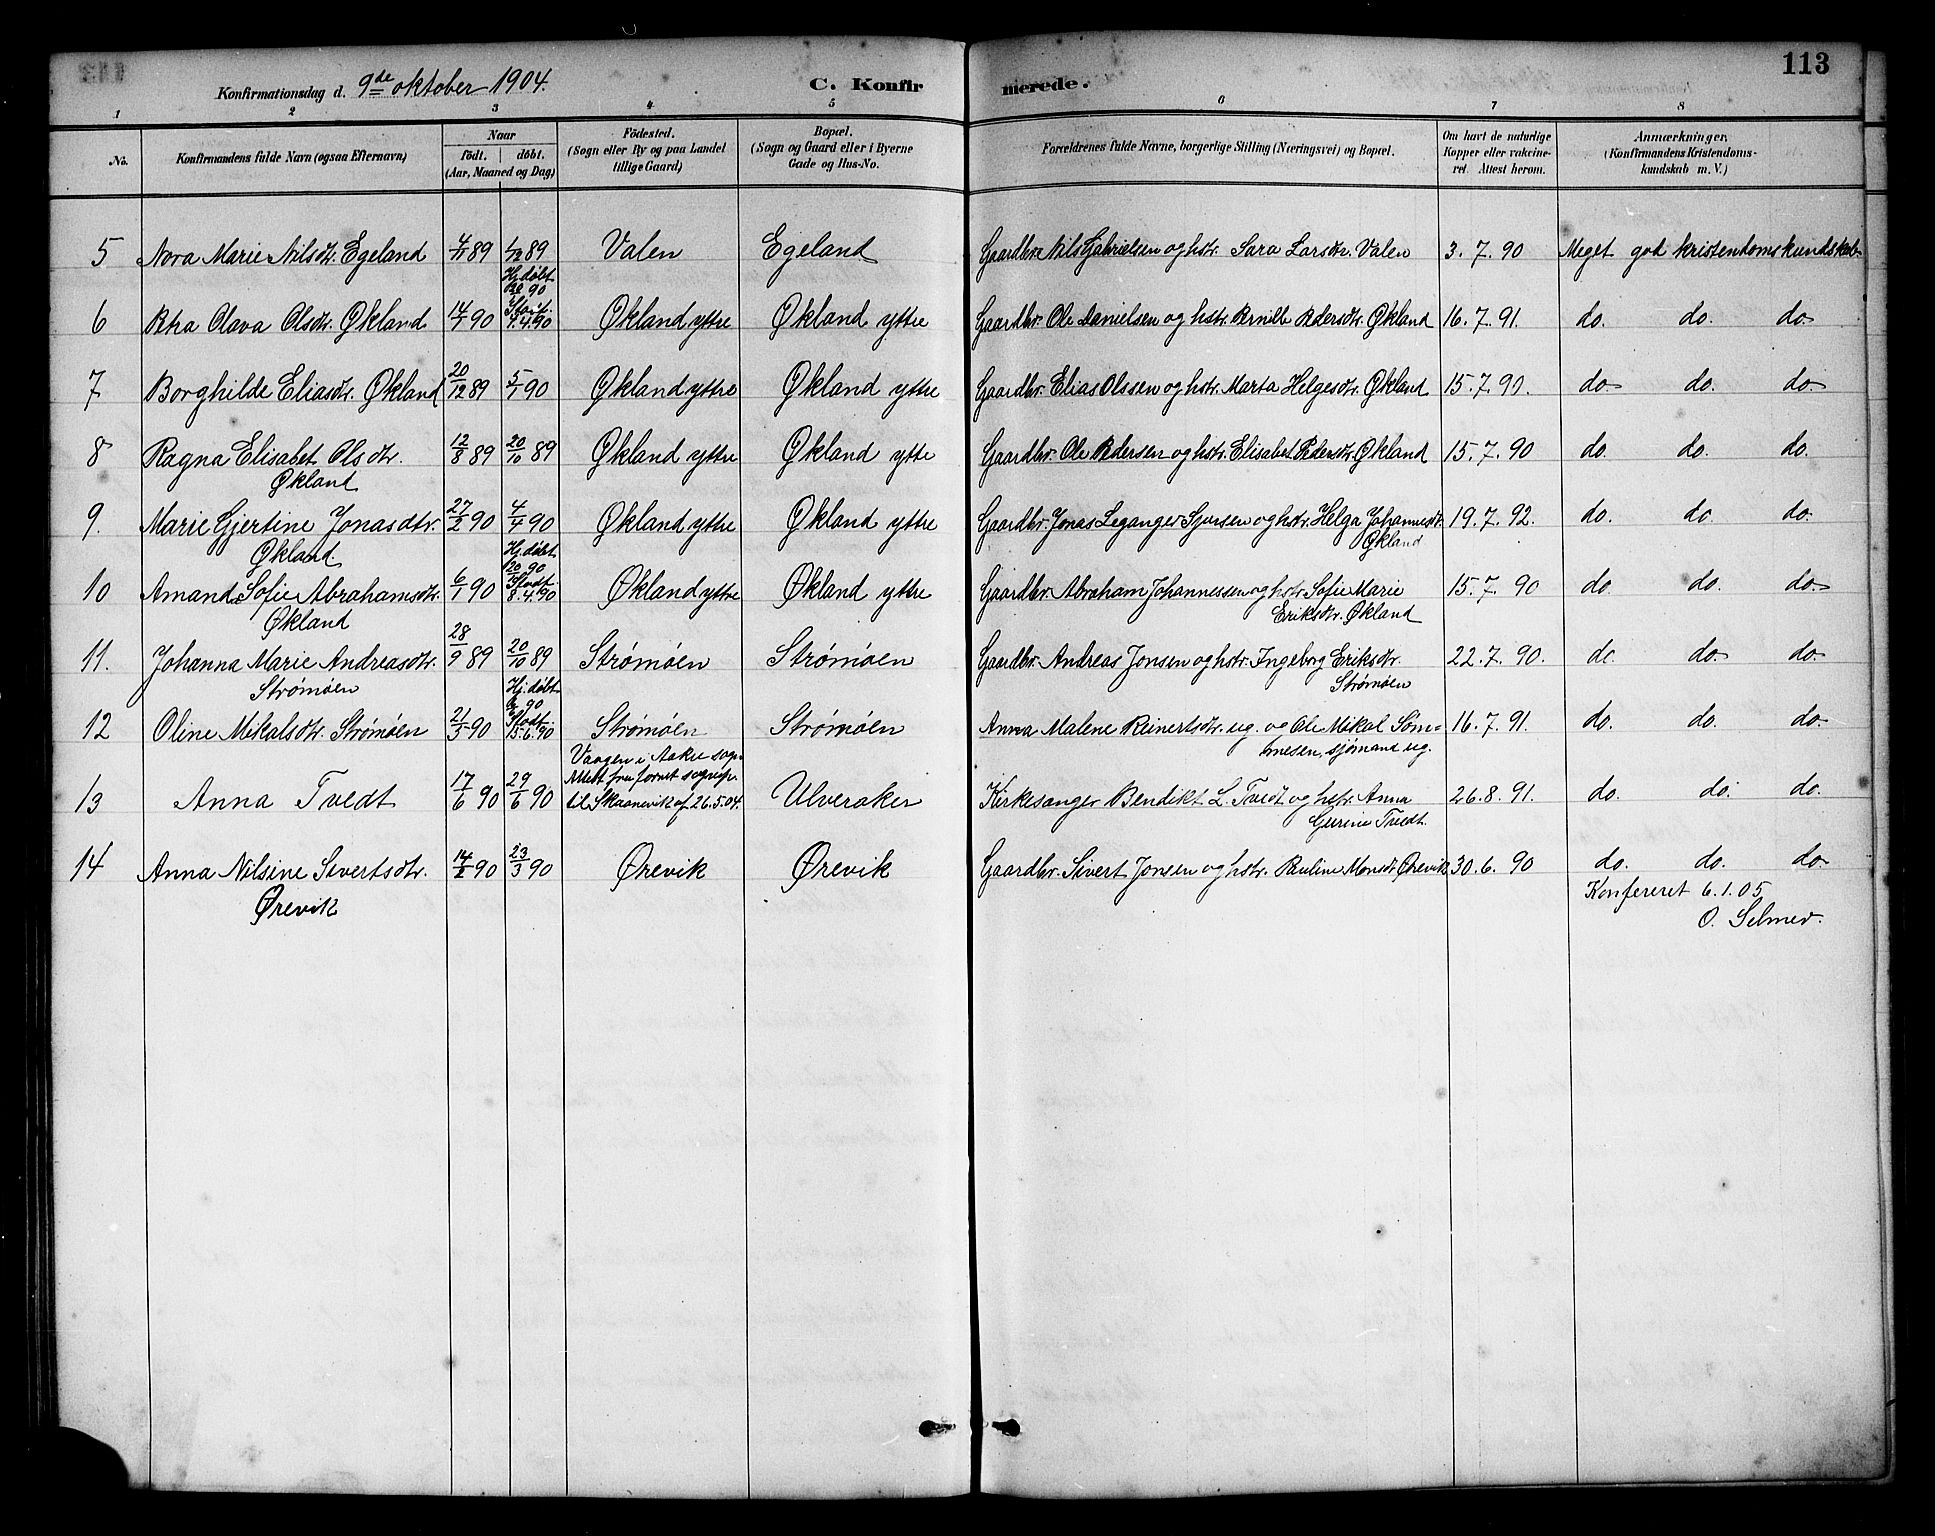 113
Konfirmationsdag d. 9de oktober 1904.
C. Konfirmerede.
1 2 3 4 5 6 7 8
No.
Konfirmandens fulde Navn (ogsaa Efternavn)
Naar
födt. döbt.
(Aar, Maaned og Dag)
Födested.
(Sogn eller By og paa Landet
tillige Gaard)
Bopæl.
(Sogn og Gaard eller i Byerne
Gade og Hus-No.
Forældrenes fulde Navne, borgerlige Stilling (Næringsvei) og Bopæl.
Om havt de naturlige
Kopper eller vakcine-
ret. Attest herom.
Anmærkninger.
(Konfirmandens Kristendoms-
kundskab m. V.)
5 Nora Marie Nilsdtr. Egeland 89 89 Valen Egeland Gaardbr. Nils Gabrielsen og hstr. Sara Larsdtr. Valen 3.7.90 Meget god kristendomskundskab
Hj. døbt
90
6 Petra Olava Olsdtr. Økland 14/1 90 4.4.90 Økland yttre Økland yttre Gaardbr. Ole Danielsen og hstr. Pernille Pedersdtr. Økland 16.7.91. do. do. do.
7 Borghilde Eliasdtr. Økland 20/12 89 5/1 90 Økland yttre Økland yttre Gaardbr. Elias Olssen og hstr. Marta Helgesdtr. Økland 15.7.90. do do. do
8 Ragna Elisabet Olsdtr. 12/8 89 20/10 89 Økland yttre Økland ytte Gaardbr. Ole Pedersen og hstr. Elisabet Pedersdtr. Økland 15.7.90 do. do. do.
Økland
9. Marie Gjertine Jonasdtr. 27/2 90 4/4 90 Økland yttre Økland yttre Gaardbr. Jonas Leganger Sjursen og hstr. Helga Johannesdtr. 19.7.92. do. do. do.
Økland Hj. døbt Økland
90
10 Amanda Sofie Abrahamsdtr. 6/1 90 8.4.90 Økland yttre Økland yttre Gaardbr. Abraham Johannessen og hstr. Sofie Marie 15.7.90 do. do. do.
Økland Eriksdtr. Økland
11. Johanna Marie Andreasdtr. 28/9 89 20/10 89 Strømøen Strømøen Gaardbr. Andreas Jonsen og hstr. Ingeborg Eriksdtr. 22.7.90. do. do. do.
Strømøen Hj. døbt Strømøen
90
12 Oline Mikalsdtr. Strømøen 21/5 90 15.6.90 Strømøen Strømøen Anna Malene Reinertsdtr. ug. og Ole Mikal Søm- 16.7.91. do. do. do.
mesen, sjømand ug.
Vaagen i Aakre sogn
Attest fra fornet sognepr.
13 Anna Tvedt 17/6 90 29/6 90 til Skaanevik af 26.5.04. Ulveraker Kirkesanger Bendikt L. Tvedt og hstr. Anna 26.8.91. do. do. do.
Tvedt.
14 Anna Nilsine Sivertsdtr. 14/2 90 23/3 90 Ørevik Ørevik Gaardbr. Sivert Jonsen og hstr. Pauline Monsdtr. Ørevik 30.6.90 do. do. do
Ørevik Konfereret 6.1.05
O. Selmer.